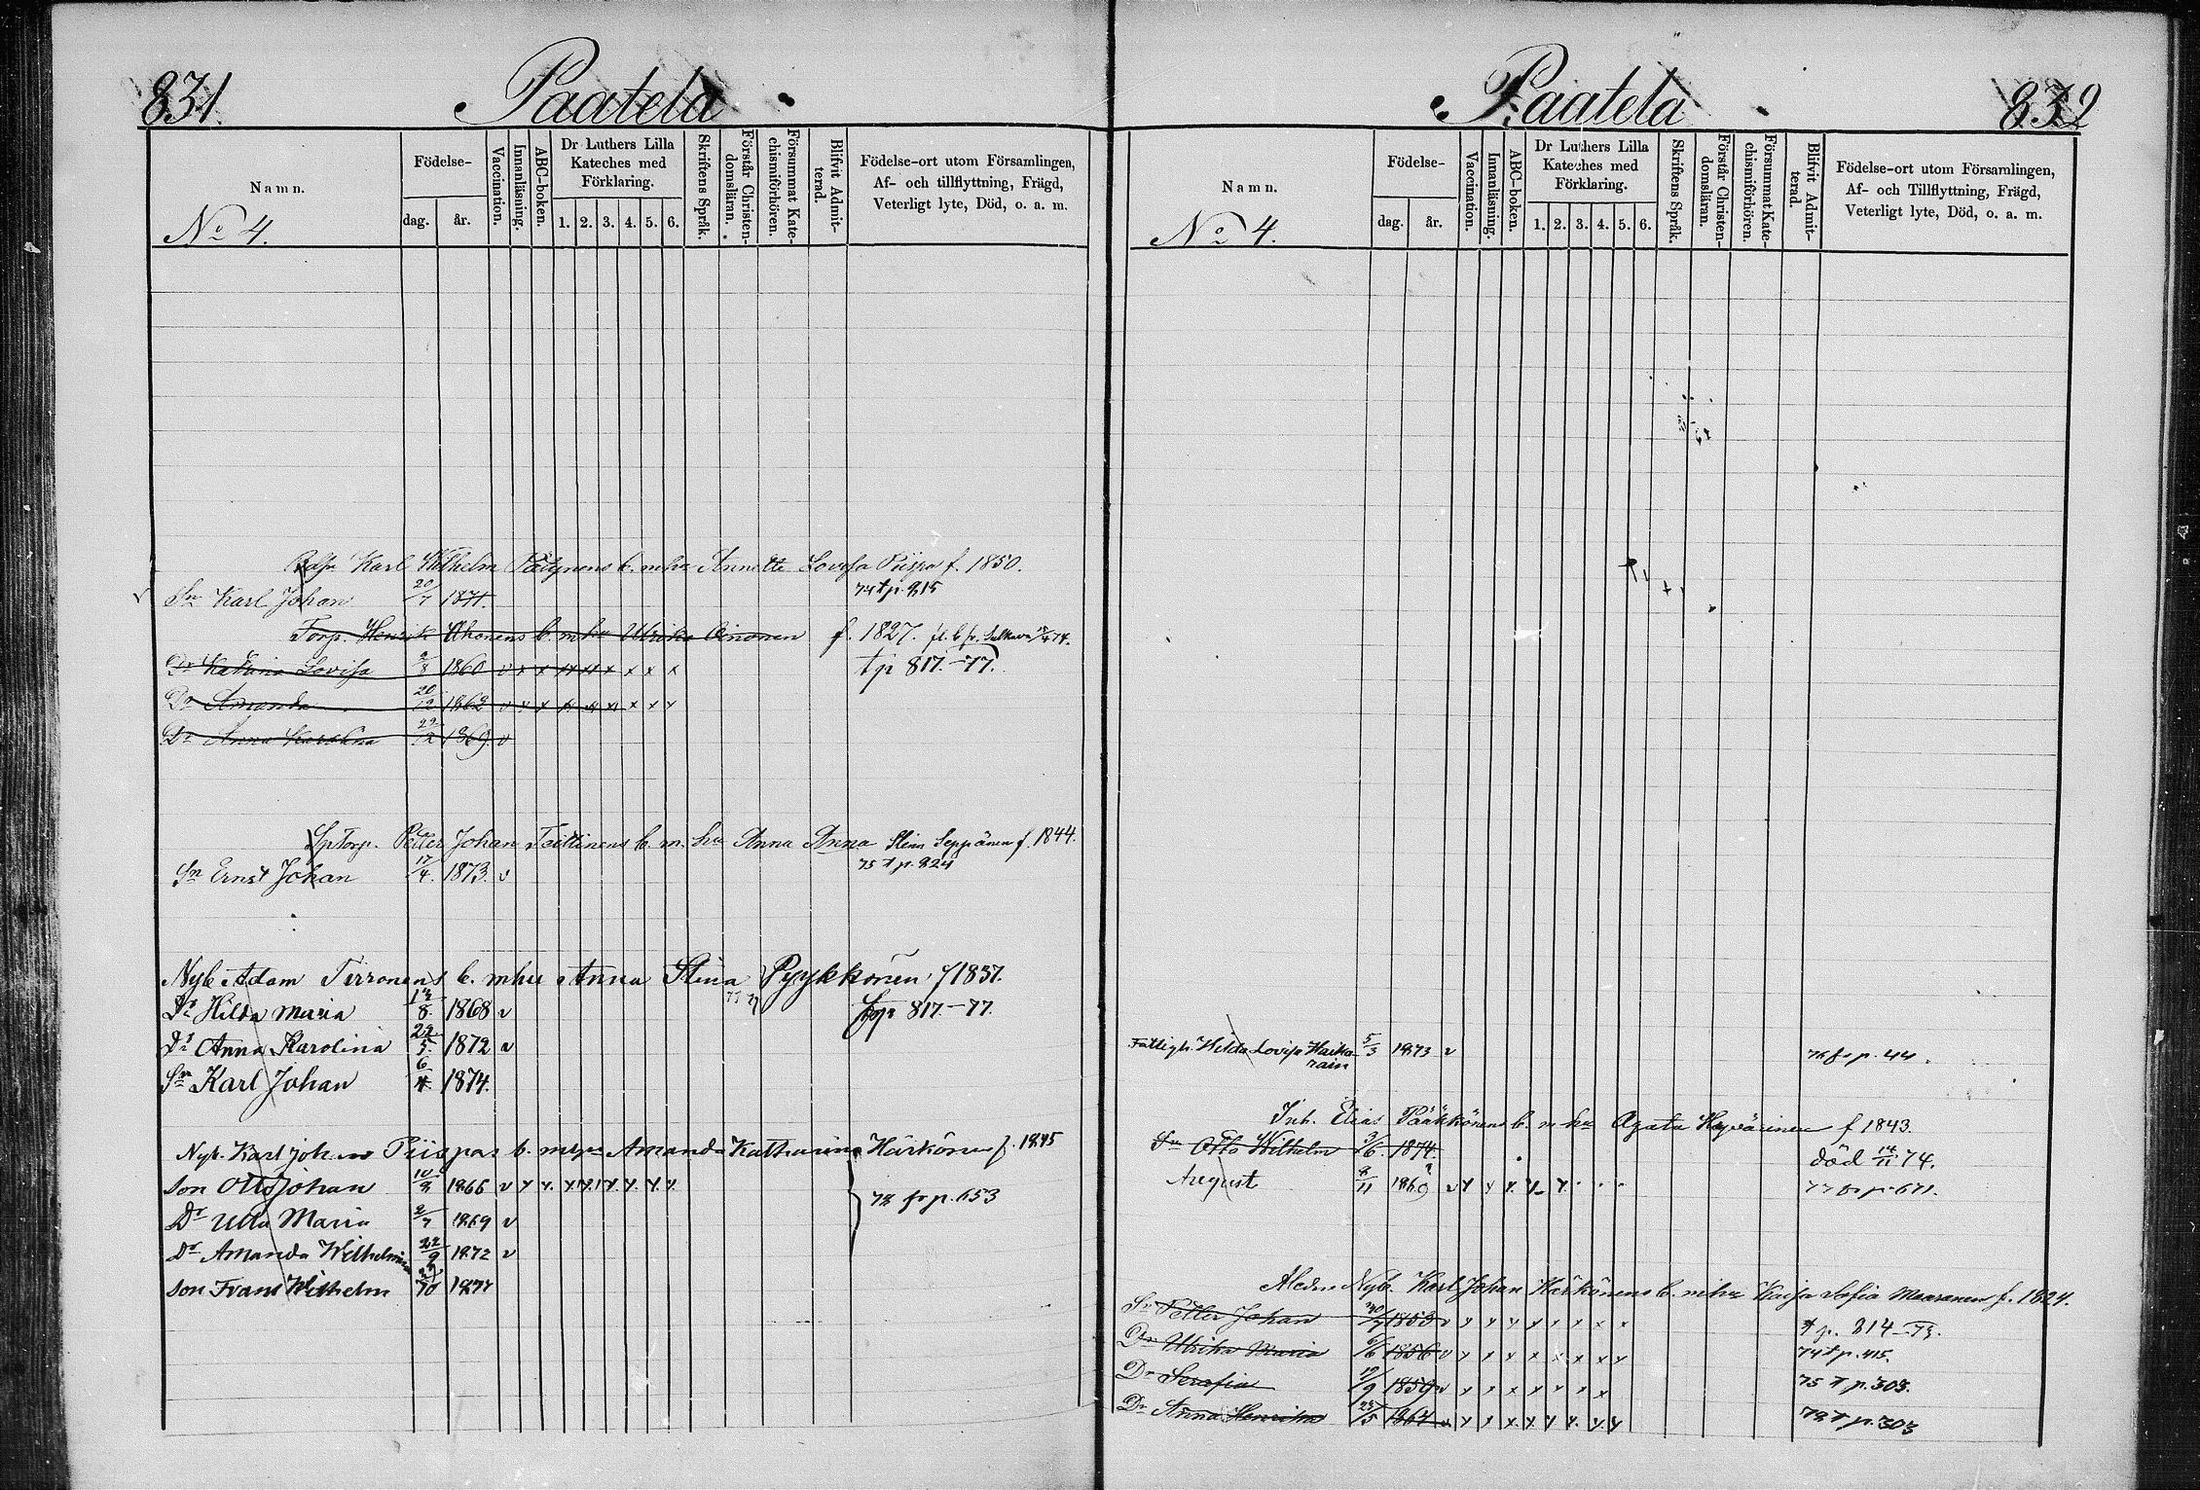 831.
Paatela
Namn.
No 4.
Födelse-
dag.
år.
Vaccination.
Innanläsning.
ABC-boken.
Dr Luthers Lilla
Kateches med
Förklaring.
1. 2. 3. 4. 5. 6.
Skriftens Språk.
Förstår Christen-
domsläran.
Försummat Kate-
chismiförhören.
Blifvit Admit-
terad.
Födelse-ort utom Församlingen,
Af- och tillflyttning, Frägd,
Veterligt lyte, Död, o. a. m.
Karl Wilhelm b. m hu Annette Lovisa Piispa f. 1850.
Sn Karl Johan 20/7 1871. 74 t p. 915
Torp. Henrik Ahonens b. m hu Ulrika Oinonen f. 1827. Sulkava 74.
Dr Katharina Lovisa 1860 v x x x x x x x x tp 817.-77.
Dr Amanda 20/12 1862 v x x x x x x x x
Dr Anna Karolina 29/12 1869. v
Petter Johan Teittinens b. m. hu Anna Anna Stina Seppänen f. 1844.
Sn Ernst Johan 17/4. 1873. v 75 t p. 824
Nyb Adam Tirronens b. mhu Anna Stina Pyykkönen f 1837.
Dr Hilda Maria 8. 1868 v 817.-77.
Dr Anna Karolina 22/5. 1872 v
Sn Karl Johan 6/4 1874.
Nyb. Karl Johan Piispas b. m hu Amanda Katharina Härkönen f. 1845
son Otto Johan 10/8 1866 v
78 fr p. 653
Dr Ulla Maria 2/7 1869 v
Dr Amanda Wilhelmina 22/9 1872 v
son Frans Wilhelm 1877
Paatela
832
Namn.
No 4.
Födelse-
dag.
år.
Vaccination.
Innanläsning.
ABC-boken.
Dr Luthers Lilla
Kateches med
Förklaring.
1. 2. 3. 4. 5. 6.
Skriftens Språk.
Förstår Christen-
domsläran.
Försummat Kate-
chismiförhören.
Blifvit Admit-
terad.
Födelse-ort utom Församlingen,
Af- och Tillflyttning, Frägd,
Veterligt lyte, Död, o. a. m.
Fattigh. Hilda Lovisa Haika- 5/3 1873 v 76 fr p. 44.
rain
Inh. Elias Pääkkönens b. m hu Agata Hyvärinen f 1843.
Sn Otto Wilhelm 3/6. 1874. död 14/11 74.
August 8/11 1869 77 fr p. 671.
Nyb. Karl Johan Härkönens b. m hu Kaisa Sofia Maaranen f. 1824.
Sn Petter Johan 30/7 1853 v t p. 814-73.
Dr Ulrika Maria 6/6 1856 v 74 t p. 415.
Dr Serafia 19/9 1859 v 75 t p. 303.
Dr Anna Henrika 23/5 1864 v 78 t p. 303